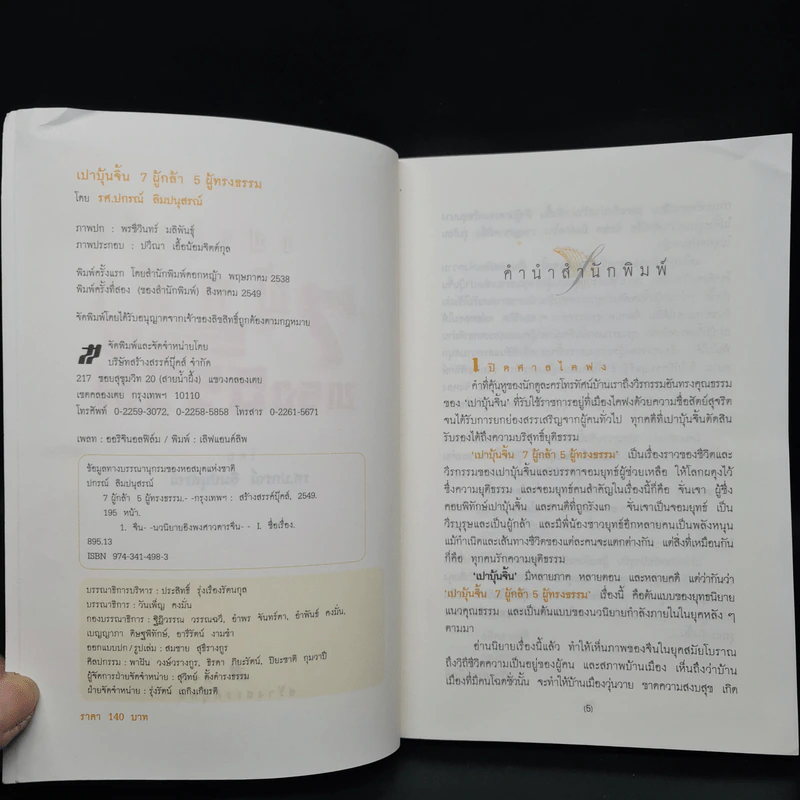 เปาบุ้นจิ้น 7 ผู้กล้า 5 ผู้ทรงธรรม
โดย รศ.ปกรณ์ ลิมปนุสรณ์
ภาพปก : พรชีวินทร์ มลิพันธุ์
ภาพประกอบ : ปวีณา เอื้อน้อมจิตต์กุล
พิมพ์ครั้งแรก โดยสำนักพิมพ์ดอกหญ้า พฤษภาคม 2538
พิมพ์ครั้งที่สอง (ของสำนักพิมพ์) สิงหาคม 2549
จัดพิมพ์โดยได้รับอนุญาตจากเจ้าของลิขสิทธิ์ถูกต้องตามกฎหมาย
จัดพิมพ์และจัดจำหน่ายโดย
บริษัทสร้างสรรค์บุ๊คส์ จำกัด
217 ซอยสุขุมวิท 20 (สายน้ำผึ้ง) แขวงคลองเตย
เขตคลองเตย กรุงเทพฯ 10110
โทรศัพท์ 0-2259-3072, 0-2258-5858 โทรสาร 0-2261-5671
เพลท : ออริจินอลฟิล์ม / พิมพ์ : เลิฟแอนด์ลิพ
ข้อมูลทางบรรณานุกรมของหอสมุดแห่งชาติ
ปกรณ์ ลิมปนุสรณ์
7 ผู้กล้า 5 ผู้ทรงธรรม.- -กรุงเทพฯ : สร้างสรรค์บุ๊คส์, 2549.
195 หน้า.
1. จีน- -นวนิยายอิงพงศาวดารจีน- - I. ชื่อเรื่อง.
895.13
ISBN 974-341-498-3
บรรณาธิการบริหาร : ประสิทธิ์ รุ่งเรืองรัตนกุล
บรรณาธิการ : วันเพ็ญ คงมั่น
กองบรรณาธิการ : ฐิฏิวรรณ วรรณฉวี, อำพร จันทร์ดา, อำพันธ์ คงมั่น,
เบญญาภา คิษฐพิทักษ์, อารีรัตน์ งามขำ
ออกแบบปก / รูปเล่ม : สมชาย สุธีรางกูร
ศิลปกรรม : พาฝัน วงษ์วรางกูร, ธีรดา ภิยะรัตน์, ปิยะชาติ กุมวาปี
ผู้จัดการฝ่ายจัดจำหน่าย : สุวิทย์ ตั้งดำรงธรรม
ฝ่ายจัดจำหน่าย : รุ่งรัตน์ เถกิงเกียรติ
ราคา 140 บาท
คำนำสำนักพิมพ์
เปิดศาลไคฟง
คำที่คุ้นหูของนักดูละครโทรทัศน์บ้านเราถึงวีรกรรมอันทรงคุณธรรม
ของ 'เปาบุ้นจิ้น' ที่รับใช้ราชการอยู่ที่เมืองไคฟงด้วยความซื่อสัตย์สุจริต
จนได้รับการยกย่องสรรเสริญจากผู้คนทั่วไป ทุกคดีที่เปาบุ้นจิ้นตัดสิน
รับรองได้ถึงความบริสุทธิ์ยุติธรรม
'เปาบุ้นจิ้น 7 ผู้กล้า 5 ผู้ทรงธรรม' เป็นเรื่องราวของชีวิตและ
วีรกรรมของเปาบุ้นจิ้นและบรรดาจอมยุทธ์ผู้ช่วยเหลือ ให้โลกผดุงไว้
ซึ่งความยุติธรรม และจอมยุทธ์คนสำคัญในเรื่องนี้ก็คือ จั่นเจา ผู้ซึ่ง
คอยพิทักษ์เปาบุ้นจิ้น และคนดีที่ถูกรังแก จั่นเจาเป็นจอมยุทธ์ เป็น
วีรบุรุษและเป็นผู้กล้า และมีพี่น้องชาวยุทธ์อีกหลายคนเป็นพลังหนุน
แม้กำเนิดและเส้นทางชีวิตของแต่ละคนจะแตกต่างกัน แต่สิ่งที่เหมือนกัน
ก็คือ ทุกคนรักความยุติธรรม
'เปาบุ้นจิ้น' มีหลายภาค หลายตอน และหลายคดี แต่ว่ากันว่า
'เปาบุ้นจิ้น 7 ผู้กล้า 5 ผู้ทรงธรรม' เรื่องนี้ คือต้นแบบของยุทธนิยาย
แนวคุณธรรม และเป็นต้นแบบของนวนิยายกำลังภายในในยุคหลัง ๆ
ตามมา
อ่านนิยายเรื่องนี้แล้ว ทำให้เห็นภาพของจีนในยุคสมัยโบราณ
ถึงวิถีชีวิตความเป็นอยู่ของผู้คน และสภาพบ้านเมือง เห็นถึงว่าบ้าน
เมืองที่มีคนโฉดชั่วนั้น จะทำให้บ้านเมืองวุ่นวาย ขาดความสงบสุข เกิด
(5)